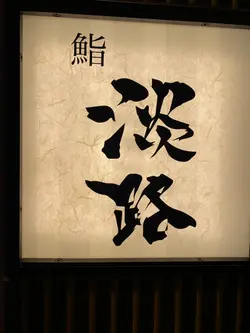 鮨
淡路